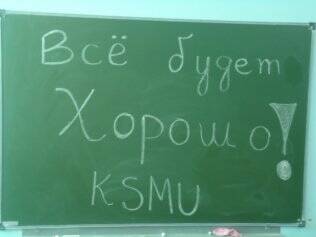 Всё будет
Хорошо!
KSMU